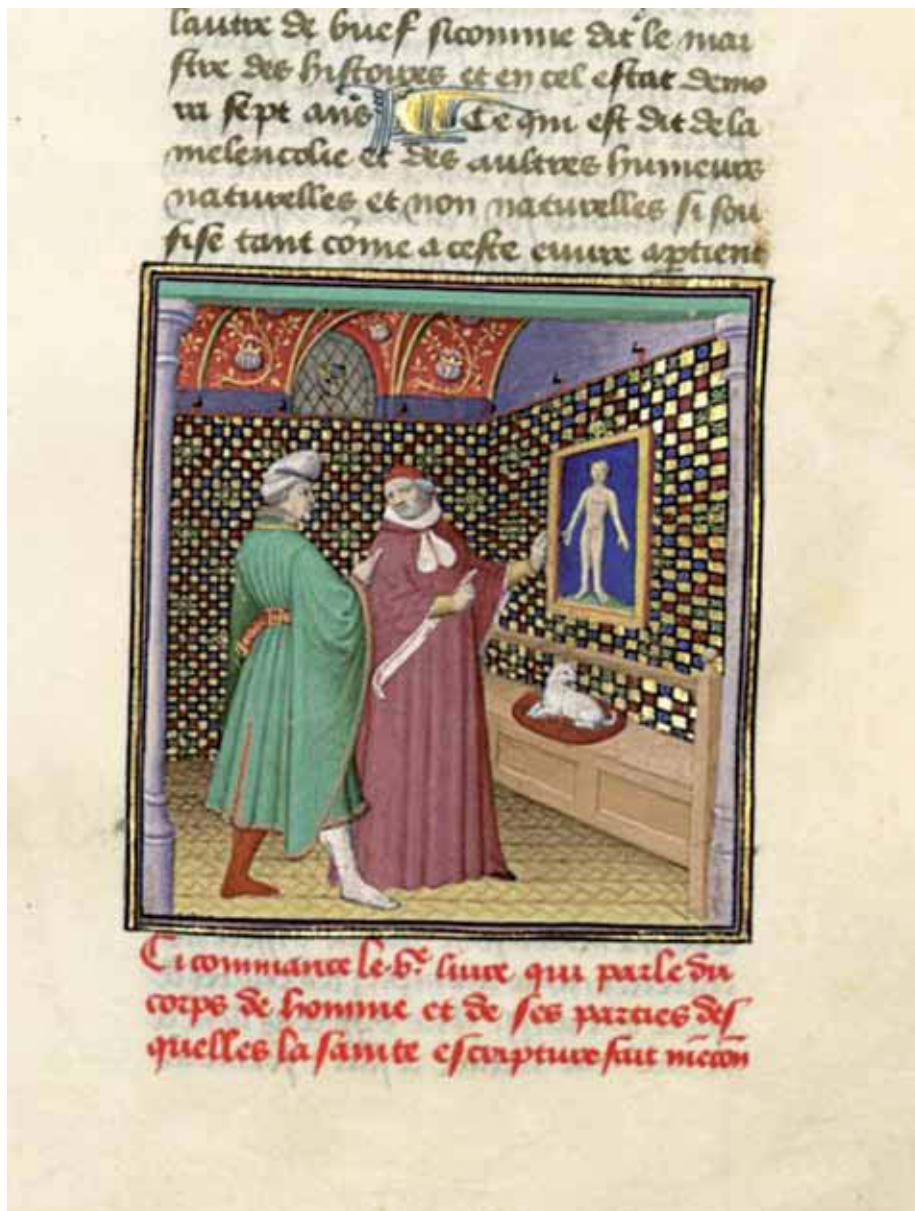 lautre de buef sicomme dit le mai
stre des histoires et en cel estat demo
ra sept ans Ce qui est dit de la
melencolie et des aultres humeurs
naturelles et non naturelles si sou
fise tant cōme a ceste euure aptient
Ci commance le .vᵉ. liure qui parle du
corps de homme et de ses parties des
quelles la sainte escripture fait mēcōn